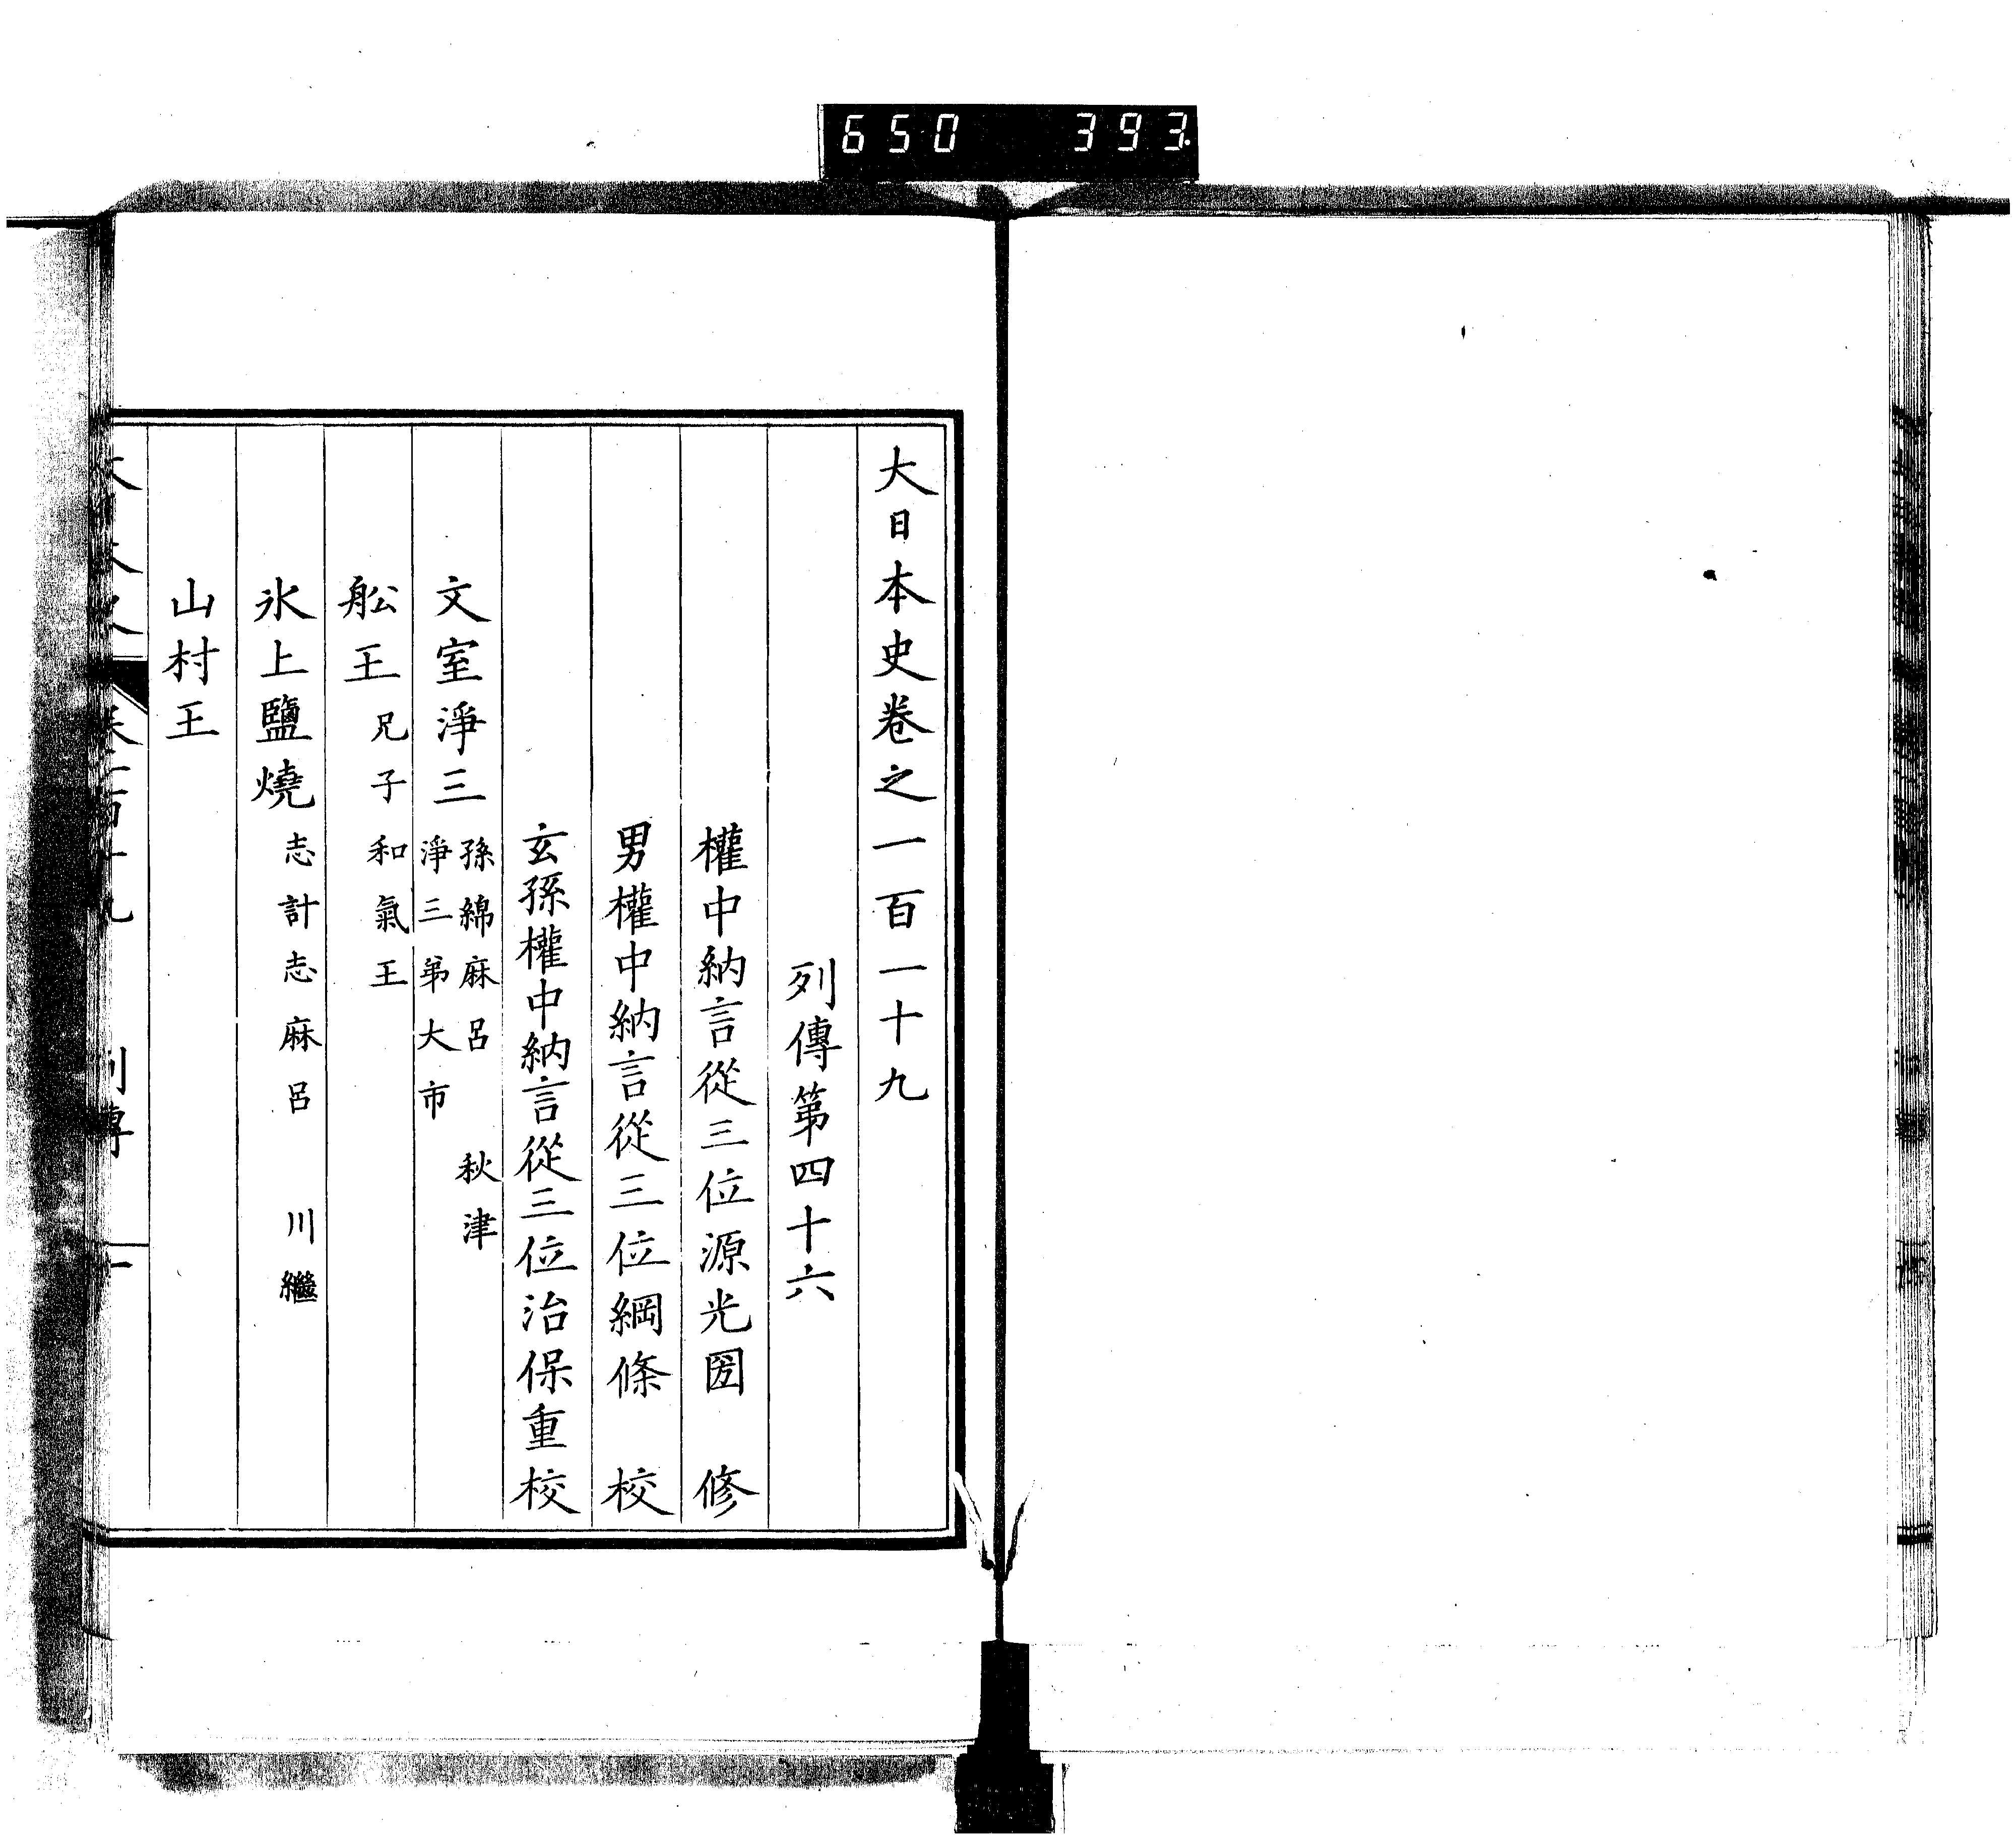 650 393
大日本史卷之一百一十九
列傳第四十六
權中納言從三位源光圀 修
男權中納言從三位綱條 校
玄孫權中納言從三位治保重校
文室淨三 孫綿麻呂 秋津
淨三弟大市
舩王 兄子和氣王
氷上鹽燒 志計志麻呂 川繼
山村王